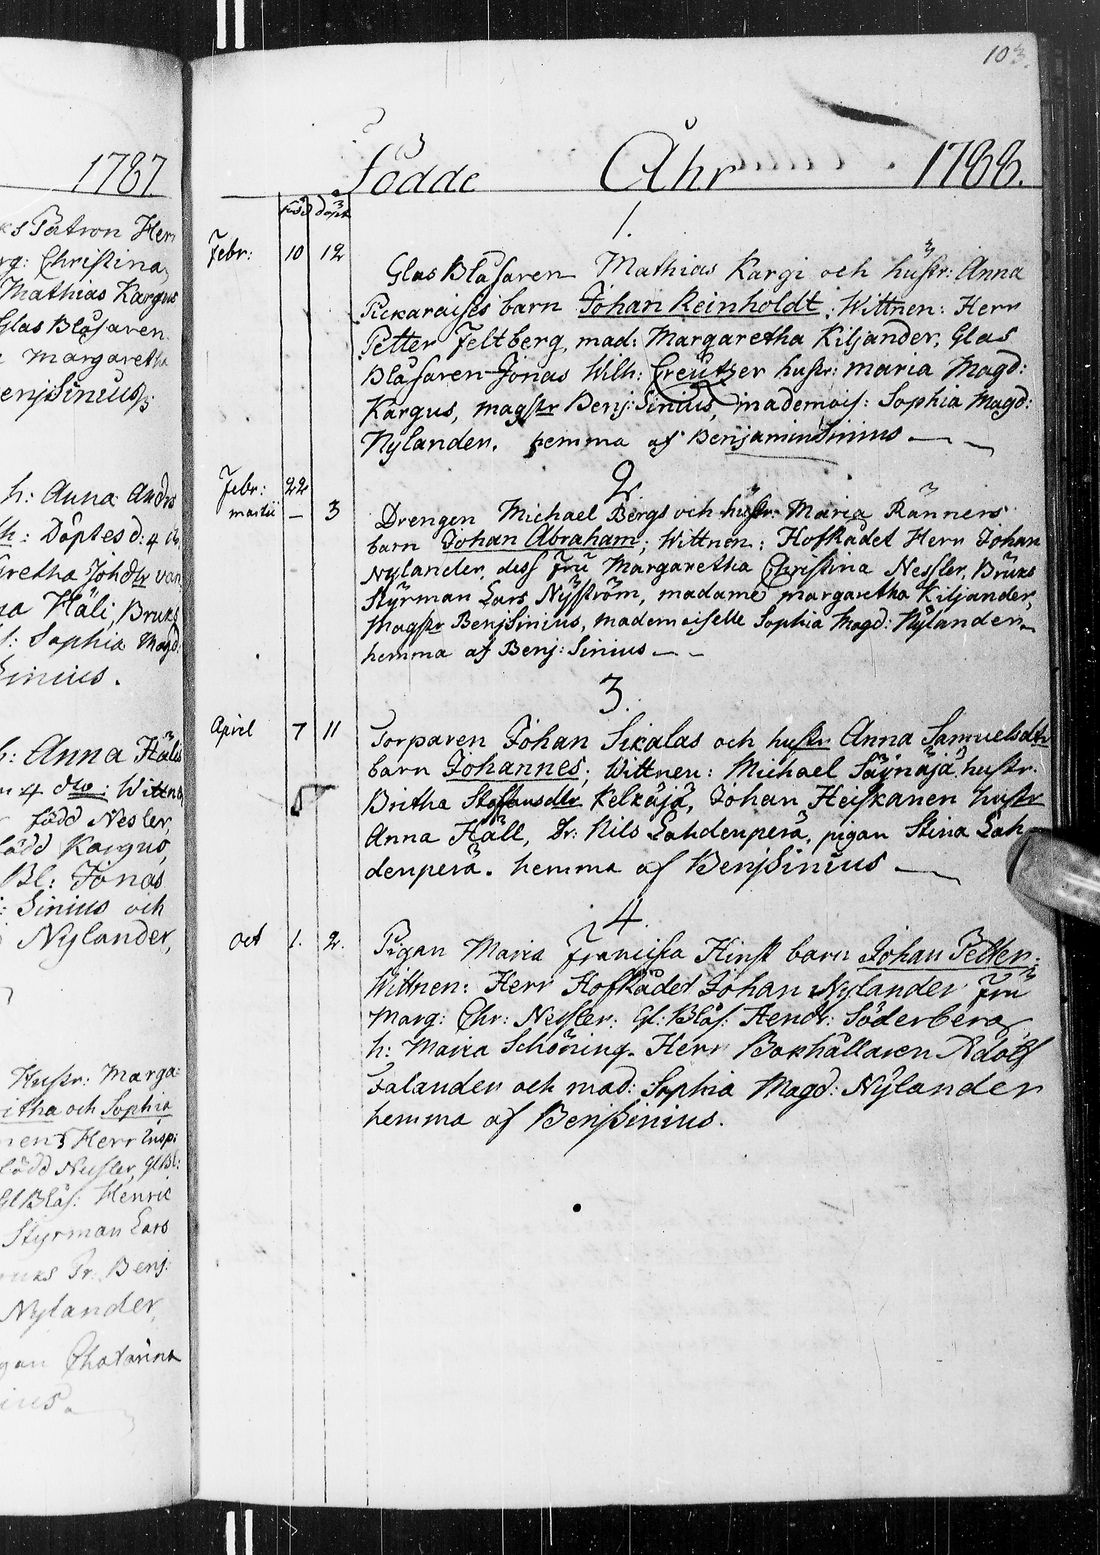 1787
ks Patron Herr
rg: Christina
Mathias Kargus
Glas Blåsaren
Margaretha
BenjSinius
h: Anna Anders
h: Döptes d: 4
Gretha Johdtr van
na Häli, Bruks
: Sophia Magd:
Sinius.
: Anna Häli
4 : Wittne
född Nesler,
född Kargus,
Bl: Jonas
: Sinius och
Nylander,
Hustr: Marga:
itha och Sophia
Herr Insp:
född Nesler, Gl Bl:
Gl Blås: Henric
Styrman Lars
Benj:
Nylander,
gan Chatarina
ius.
103.
Födde Åhr 1788.
född döpt
1.
Febr: 10 12
Glas Blåsaren Mathias Kargi och hustr: Anna
Pickaraises barn Johan Reinholdt; Wittnen: Herr
Petter Feltberg, mad: Margaretha Kiljander, Glas
Blåsaren Jonas Wilh: Creutzer hustr: Maria Magd:
Kargus, magstr Benj: Sinius, mademois: Sophia Magd:
Nylander. hemma af Benjamin Sinius
2.
Febr: 22
martii – 3
Drengen Michael Bergs och hustr: Maria Ränners
barn Johan Abraham; Wittnen: Hofrådet Herr Johan
Nylander, dess Fru Margaretha Christina Nessler, Bruks
Styrman Lars Nyström, madame margaretha Kiljander,
Magstr BenjSinius, mademoiselle Sophia Magd: Nylander
hemma af Benj: Sinius
3.
April 7 11
Torparen Johan Sikalas och hustr Anna Samuelsdtr
barn Johannes; Wittnen: Michael Säynäjä, hustr.
Britha Staffansdtr Kelkäjä, Johan Heiskanen hustr
Anna Häll, Dr: Nils Lahdenperä, pigan Stina Lah-
denperä. hemma af BenjSinius
4.
Oct 1. 2.
Pigan Maria Francisca Hinst barn Johan Petter;
Wittnen: Herr Hofrådet Johan Nylander Fru
Marg: Chr: Nessler: Gl: Blås: Hendr: Söderberg
h: Maria Schöning. Herr Bokhållaren Adolf
Falander och mad: Sophia Magd: Nylander
hemma af BenjSinius.